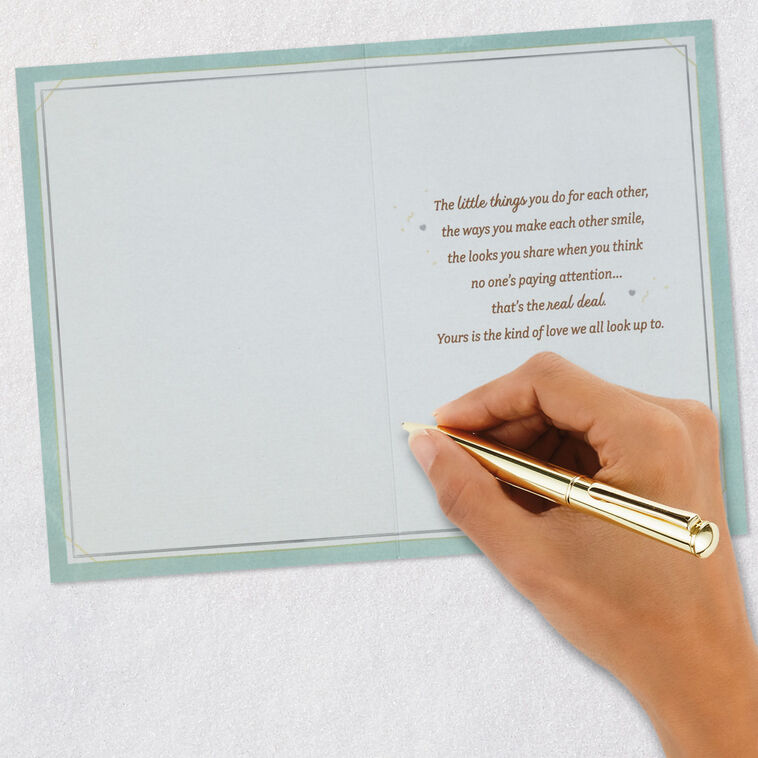 The little things you do for each other,
the ways you make each other smile,
the looks you share when you think
no one's paying attention...
that's the real deal.
Yours is the kind of love we all look up to.